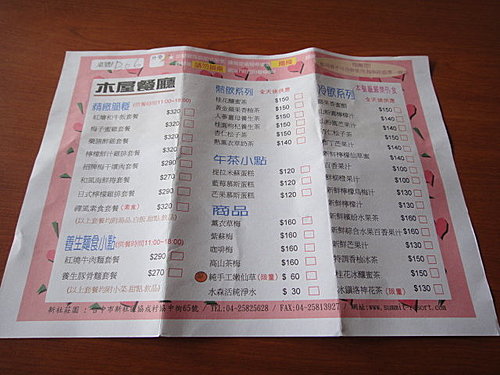 桌號
木屋餐廳
精緻簡餐(供餐時間11:00~18:00)
紅燴和牛飯套餐 $320
梅子蜜雞套餐 $320
藥膳鮮嫩套餐 $290
檸檬鮮汁雞排套餐 $320
梅干燜肉套餐 $290
和風南鮮梅套餐 $290
日式檸檬雞排套餐 $320
禪風素食套餐(素食) $320
(以上套餐均附湯品.白飯.甜點.飲品)
養生麵食小點(供餐時間11:00~18:00)
紅燒牛肉麵套餐 $290
養生豚骨麵套餐 $270
(以上套餐均附小菜.甜點.飲品)
熱飲系列 全天候供應
桂花釀蜜茶 $150
黃金蘋果香柚茶 $150
人蔘薑母養生茶 $150
桂圓枸杞養生茶 $150
杏仁松子茶 $150
熱薰衣草奶茶 $140
午茶小點
提拉米蘇蛋糕 $120
藍莓慕斯蛋糕 $120
芒果慕斯蛋糕 $120
商品
薰衣草梅 $160
紫蘇梅 $160
咖啡梅 $160
高山茶梅 $160
純手工嫩仙草(限量) $ 60
水森活純淨水 $ 30
冷飲系列
全天候供應
$150
$140
杏仁松子茶 $150
新鮮檸檬桔草蜜 $140
新鮮柳橙果汁 $130
新鮮檸檬烏梅汁 $130
新鮮繽紛水果茶 $160
新鮮綜合水果百香果汁 $160
新鮮芒果汁 $130
特調香柚冰茶 $150
桂花冰釀蜜茶 $150
冰鎮洛神花茶(限量) $130
新社莊園:台中市新社區協成村協中街65號 / TEL:04-25825628 / FAX:04-25813927 / 網址:www.summit-resort.com